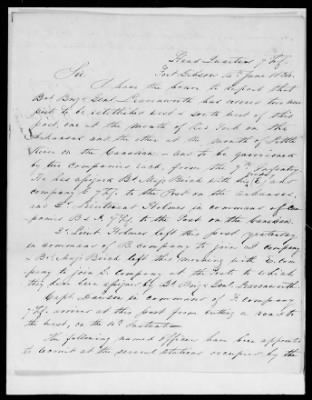 Head Quarters 7 Inf.
Fort Gibson 20th June 1834.
Sir
I have the honor to report that
Bvt Brig. Genl. Leavenworth has ordered two new
posts to be established west & south west of this
post, one at the mouth of Red Fork on the
Arkansas and the other at the mouth of Little
River on the Canadian - and to be garrisoned
by two companies each, from the 7th Infantry
He has assigned Bt. Maj. Birch with
company 7 Inf. to the Post on the Arkansas,
and 1st Lieutenant Holmes in command of Com-
panies B & 7 Inf. to the Post on the Canadian.
Lieut Holmes left this post yesterday
in command of B company to join company
Bt. Maj. Birch left this morning with C. Com-
pany to join company at the Posts to which
they have been assigned by Bt. Brig. Genl. Leavenworth.
Capt. in command of F. company
7 Inf. arrived at this post from cutting a road to
the west, on the Instant
The following named officers have been appointed
to Command at the several stations occupied by the